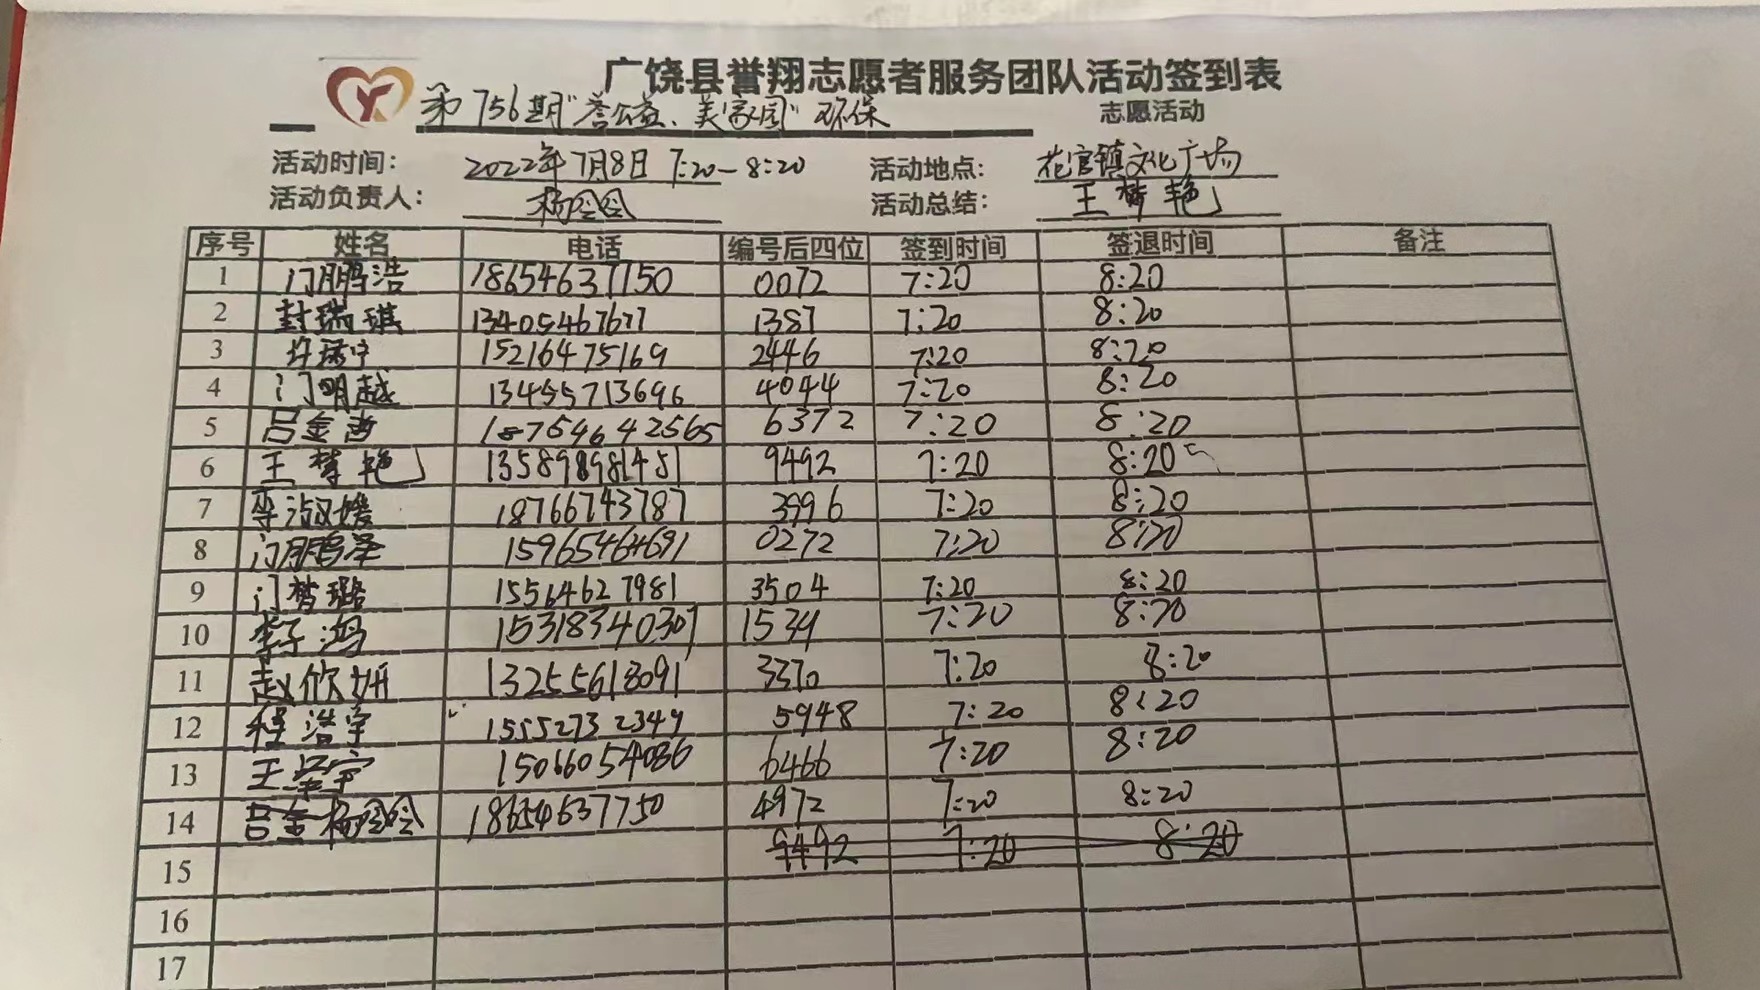 广饶县誉翔志愿者服务团队活动签到表
第756期"誉公益、美家园"环保 志愿活动
活动时间： 2022年7月8日 7:20-8:20 活动地点： 花官镇文化广场
活动负责人： 杨会会 活动总结： 王梦艳
序号 姓名 电话 编号后四位 签到时间 签退时间 备注
1 门鹏浩 18654637750 0072 7:20 8:20
2 封瑞琪 13405467677 1387 7:20 8:20
3 15216475169 2446 7:20 8:20
4 门明越 13455713696 4044 7:20 8:20
5 吕金哲 18754642565 6372 7:20 8:20
6 王梦艳 135898981451 9492 7:20 8:20
7 李淑媛 18766743787 3996 7:20 8:20
8 门鹏泽 15965464691 0272 7:20 8:20
9 门梦璐 15564627981 3504 7:20 8:20
10 李子鸿 15318340307 1534 7:20 8:20
11 赵欣妍 13255618091 3370 7:20 8:20
12 程浩宇 15552732349 5948 7:20 8:20
13 王宇 15066054086 6466 7:20 8:20
14 吕金杨会会 18654637750 4972 7:20 8:20
15 9492 7:20 8:20
16
17